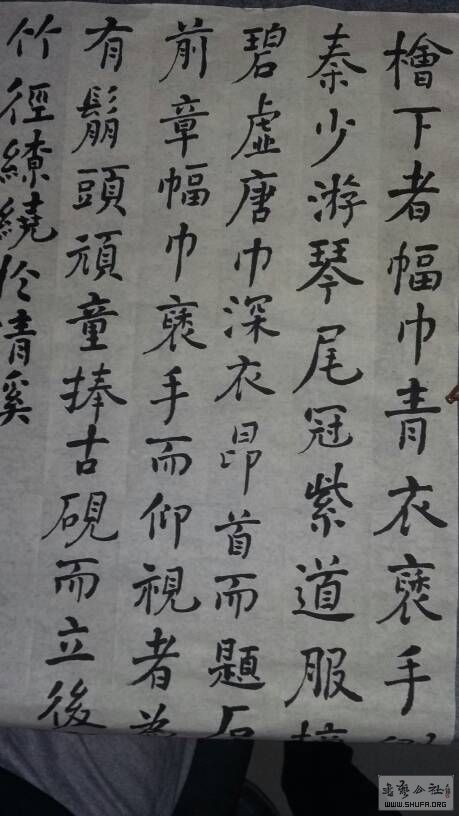 檜下者幅巾青衣褎手
秦少游琴尾冠紫道服摘
碧虛唐巾深衣昂首而題石
前章幅巾褎手而仰視者為
有鬅頭頑童捧古硯而立後
竹徑繚繞於清溪
書藝公社
WWW.SHUFA.ORG